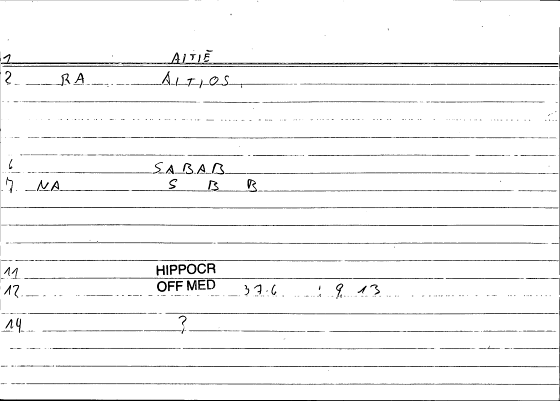 1 AITIĒ
2 RA AITIOS,
6 SABAB
7 NA S B B
11 HIPPOCR
12 OFF MED 37.6 : 9 13
14 ?